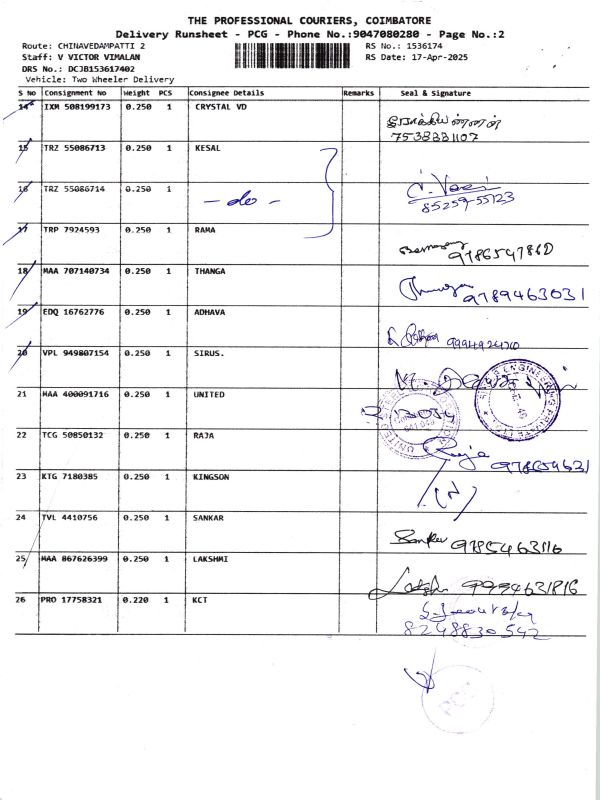 THE PROFESSIONAL COURIERS, COIMBATORE
Delivery Runsheet - PCG - Phone No.:9047080280 - Page No.:2
Route: CHINAVEDAMPATTI 2 RS No.: 1536174
Staff: V VICTOR VIMALAN RS Date: 17-Apr-2025
DRS No.: DCJB153617402
Vehicle: Two Wheeler Delivery
S No Consignment No Weight PCS Consignee Details Remarks Seal & Signature
14 IXM 508199173 0.250 1 CRYSTAL VD
7538881107
15 TRZ 55086713 0.250 1 KESAL
16 TRZ 55086714 0.250 1 - do -
85259-55123
17 TRP 7924593 0.250 1 RAMA
18 MAA 707140734 0.250 1 THANGA
9789463031
19 EDQ 16762776 0.250 1 ADHAVA
20 VPL 949807154 0.250 1 SIRUS.
21 MAA 400091716 0.250 1 UNITED
22 TCG 50850132 0.250 1 RAJA
Raja
23 KTG 7180385 0.250 1 KINGSON
24 TVL 4410756 0.250 1 SANKAR
Sanker 9785463116
25 MAA 867626399 0.250 1 LAKSHMI
9994631816
26 PRO 17758321 0.220 1 KCT
8248830542